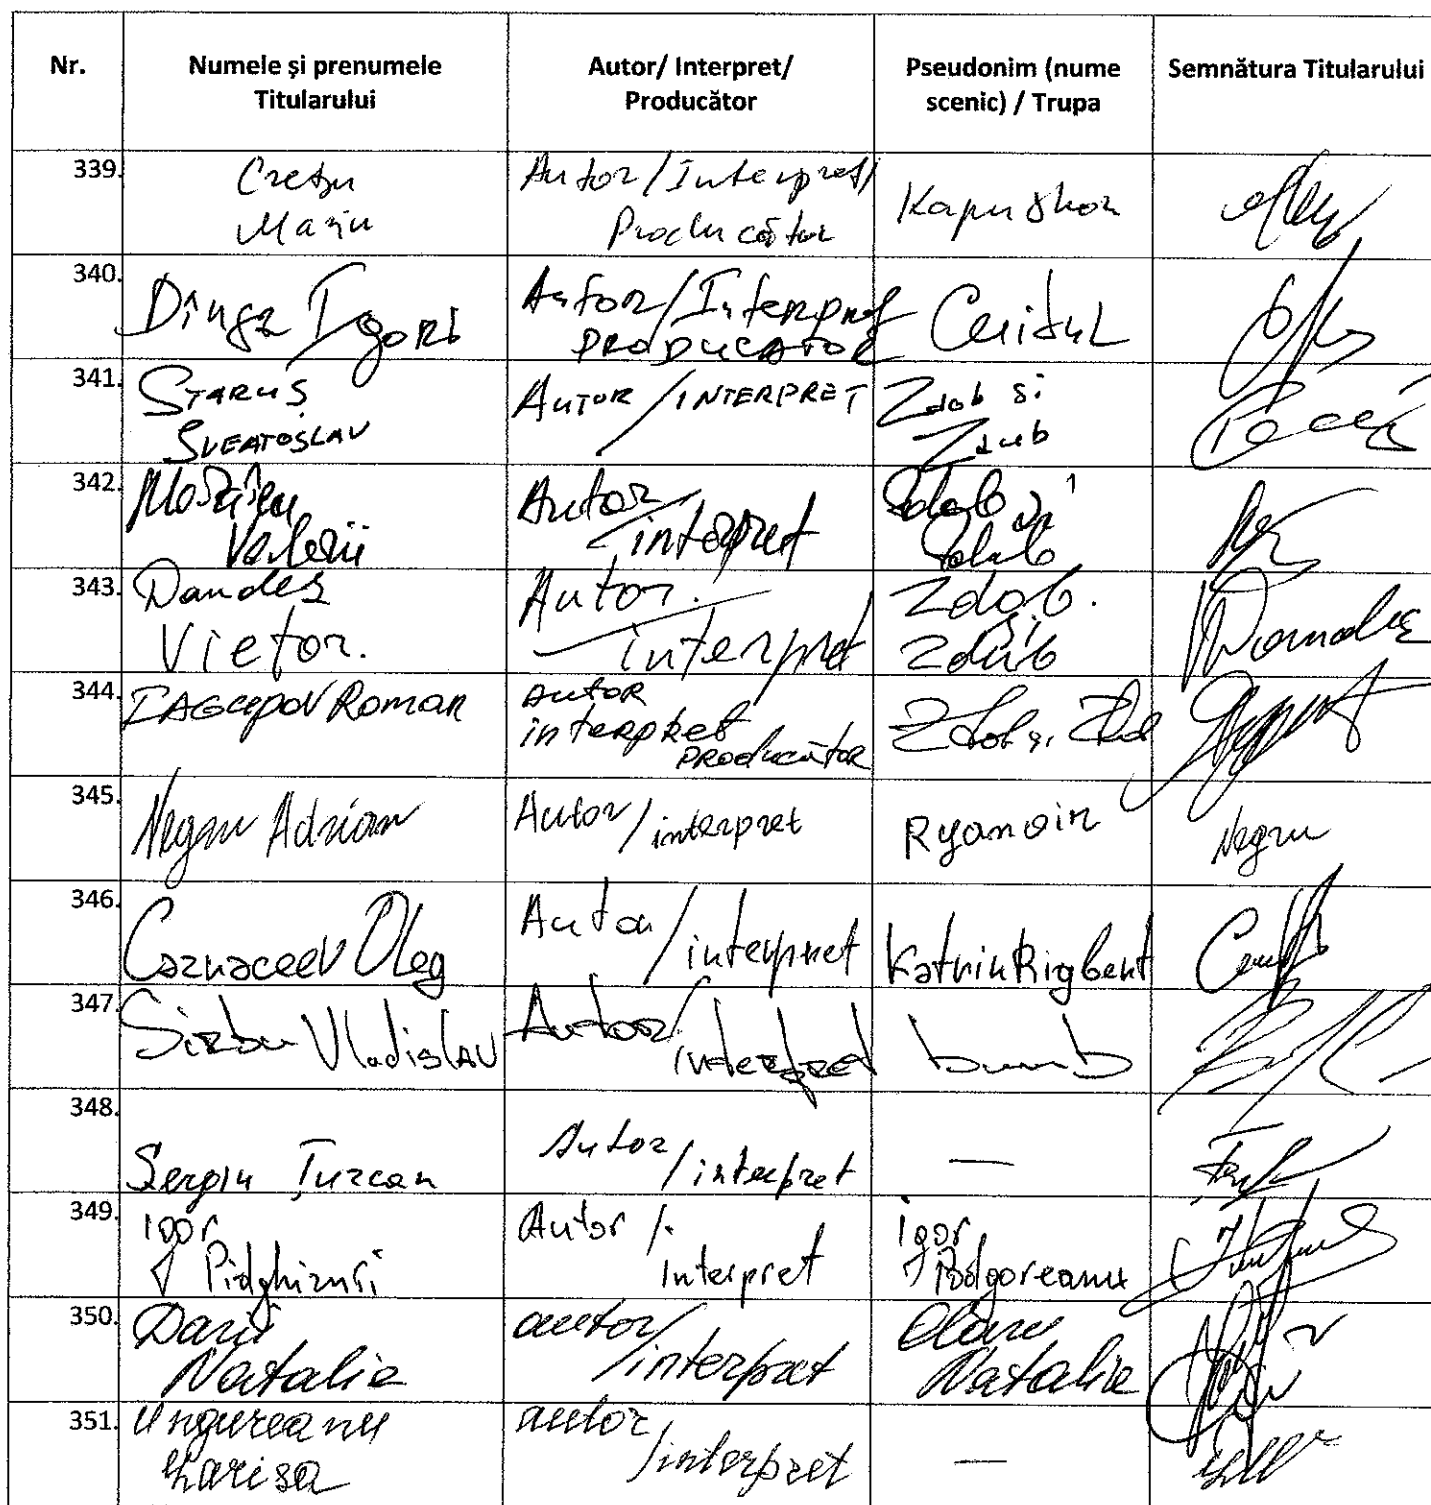 Nr. Numele și prenumele Titularului Autor/ Interpret/ Producător Pseudonim (nume scenic) / Trupa Semnătura Titularului
339. Crețu Mariu Autor/Interpret/ Producător Kapushon
340. Dînga Igori Autor/Interpret PRODUCATOR
341. STARUȘ SVEATOSLAV AUTOR/INTERPRET Zdob si Zdub
342. Valerii Autor/interpret Zdob și Zdub
343. Dandeș Victor. Autor. interpret Zdob. și Zdub
344. IAGUPOV Roman autor interpret producător Zdob și Zdub
345. Negru Adrian Autor/interpret Ryanair Negru
346. Caznaceev Oleg Autor/interpret
347. Sîrbu Vladislav Autor/interpret bumb
348. Sergiu Țurcan Autor/interpret —
349. Igor Pidghirnîi Autor/Interpret Igor Podgoreanu
350. Darii Natalia autor/interpret Olaru Natalia
351. Ungureanu Larisa autor/interpret —